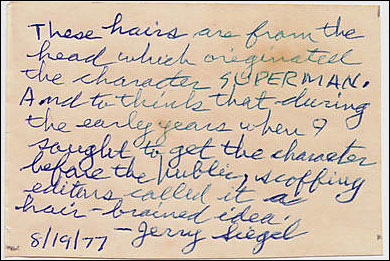 These hairs are from the
head which originated
the character SUPERMAN.
And to think that during
the early years when I
sought to get the character
before the public, scoffing
editors called it a
hair-brained idea!
8/19/77 - Jerry Siegel